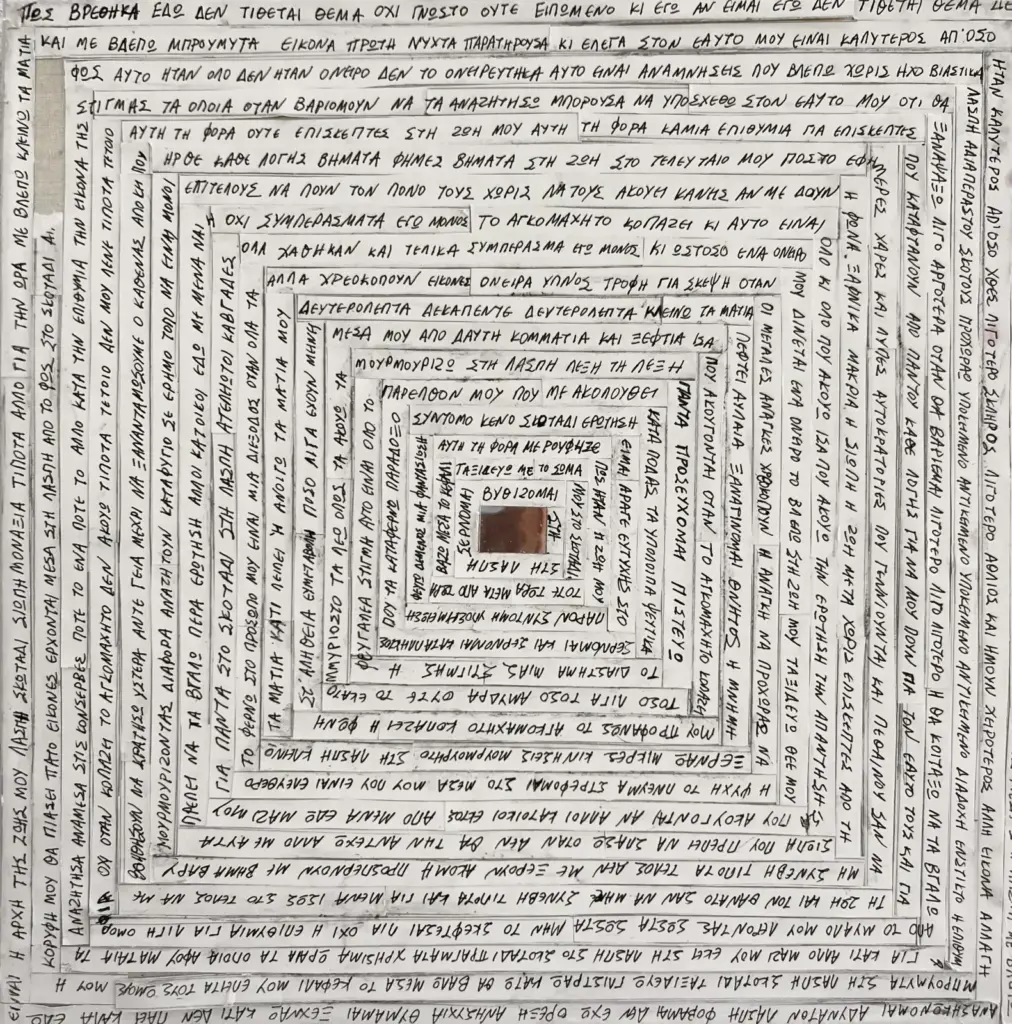 ΠΩΣ ΒΡΕΘΗΚΑ ΕΔΩ ΔΕΝ ΤΙΘΕΤΑΙ ΘΕΜΑ ΟΧΙ ΓΝΩΣΤΟ ΟΥΤΕ ΕΙΠΩΜΕΝΟ ΚΙ ΕΓΩ ΑΝ ΕΙΜΑΙ ΕΓΩ ΔΕΝ ΤΙΘΕΤΑΙ ΘΕΜΑ ΔΕ
ΚΑΙ ΜΕ ΒΛΕΠΩ ΜΠΡΟΥΜΥΤΑ ΕΙΚΟΝΑ ΠΡΩΤΗ ΝΥΧΤΑ ΠΑΡΑΤΗΡΟΥΣΑ ΚΙ ΕΛΕΓΑ ΣΤΟΝ ΕΑΥΤΟ ΜΟΥ ΕΙΝΑΙ ΚΑΛΥΤΕΡΟΣ ΑΠ'ΟΣΟ
ΦΩΣ ΑΥΤΟ ΗΤΑΝ ΟΛΟ ΔΕΝ ΗΤΑΝ ΟΝΕΙΡΟ ΔΕΝ ΤΟ ΟΝΕΙΡΕΥΤΗΚΑ ΑΥΤΟ ΕΙΝΑΙ ΑΝΑΜΝΗΣΕΙΣ ΠΟΥ ΒΛΕΠΩ ΧΩΡΙΣ ΗΧΟ ΒΙΑΣΤΙΚΑ
ΣΤΙΓΜΑΣ ΤΑ ΟΠΟΙΑ ΟΤΑΝ ΒΑΡΙΟΜΟΥΝ ΝΑ ΤΑ ΑΝΑΖΗΤΗΣΩ ΜΠΟΡΟΥΣΑ ΝΑ ΥΠΟΣΧΕΘΩ ΣΤΟΝ ΕΑΥΤΟ ΜΟΥ ΟΤΙ ΘΑ
ΑΥΤΗ ΤΗ ΦΟΡΑ ΟΥΤΕ ΕΠΙΣΚΕΠΤΕΣ ΣΤΗ ΖΩΗ ΜΟΥ ΑΥΤΗ ΤΗ ΦΟΡΑ ΚΑΜΙΑ ΕΠΙΘΥΜΙΑ ΓΙΑ ΕΠΙΣΚΕΠΤΕΣ
ΗΡΘΕ ΚΑΘΕ ΛΟΓΗΣ ΒΗΜΑΤΑ ΦΗΜΕΣ ΒΗΜΑΤΑ ΣΤΗ ΖΩΗ ΣΤΟ ΤΕΛΕΥΤΑΙΟ ΜΟΥ ΠΟΣΤΟ ΕΦΗ
ΕΠΙΤΕΛΟΥΣ ΝΑ ΠΟΥΝ ΤΟΝ ΠΟΝΟ ΤΟΥΣ ΧΩΡΙΣ ΝΑ ΤΟΥΣ ΑΚΟΥΕΙ ΚΑΝΕΙΣ ΑΝ ΜΕ ΔΟΥΝ
Η ΟΧΙ ΣΥΜΠΕΡΑΣΜΑΤΑ ΕΓΩ ΜΟΝΟΣ ΤΟ ΑΓΚΟΜΑΧΗΤΟ ΚΟΠΑΖΕΙ ΚΙ ΑΥΤΟ ΕΙΝΑΙ
ΟΛΑ ΧΑΘΗΚΑΝ ΚΑΙ ΤΕΛΙΚΑ ΣΥΜΠΕΡΑΣΜΑ ΕΓΩ ΜΟΝΟΣ ΚΙ ΩΣΤΟΣΟ ΕΝΑ ΟΝΕΙΡΟ
ΑΛΛΑ ΧΡΕΟΚΟΠΟΥΝ ΕΙΚΟΝΕΣ ΟΝΕΙΡΑ ΥΠΝΟΣ ΤΡΟΦΗ ΓΙΑ ΣΚΕΨΗ ΟΤΑΝ
ΔΕΥΤΕΡΟΛΕΠΤΑ ΔΕΚΑΠΕΝΤΕ ΔΕΥΤΕΡΟΛΕΠΤΑ ΚΛΕΙΝΩ ΤΑ ΜΑΤΙΑ
ΜΕΣΑ ΜΟΥ ΑΠΟ ΔΑΥΤΗ ΚΟΜΜΑΤΙΑ ΚΑΙ ΞΕΦΤΙΑ ΙΣΑ
ΜΟΥΡΜΟΥΡΙΖΩ ΣΤΗ ΛΑΣΠΗ ΛΕΞΗ ΤΗ ΛΕΞΗ
ΠΑΡΕΛΘΟΝ ΜΟΥ ΠΟΥ ΜΕ ΑΚΟΛΟΥΘΕΙ
ΣΥΝΤΟΜΟ ΚΕΝΟ ΣΚΟΤΑΔΙ ΕΡΩΤΗΣΗ
ΑΥΤΗ ΤΗ ΦΟΡΑ ΜΕ ΡΟΥΦΗΞΕ
ΤΑΞΙΔΕΥΩ ΜΕ ΤΟ ΣΩΜΑ
ΒΥΘΙΖΟΜΑΙ
ΣΤΗ
ΣΤΗ ΛΑΣΠΗ
ΣΕΡΝΟΜΑΙ
ΜΟΥ ΣΤΟ ΣΚΟΤΑΔΙ
ΤΟΤΕ ΤΩΡΑ ΜΕΤΑ ΑΠΟ ΤΩΡΑ
ΒΑΖΩ ΜΕΣΑ ΤΟ ΚΕΦΑΛΙ
ΠΩΣ ΗΤΑΝ Η ΖΩΗ ΜΟΥ
ΠΑΡΟΝ ΣΥΝΤΟΜΗ ΥΠΟΣΧΕΣΗ
ΕΙΜΑΙ ΑΡΑΓΕ ΕΥΤΥΧΗΣ ΣΤΟ
ΣΕΡΝΟΜΑΙ ΚΑΙ ΣΕΡΝΟΜΑΙ ΚΑΤΑΛΛΗΛΟΣ
ΠΟΥ ΤΑ ΚΑΤΑΦΕΡΝΩ ΠΑΡΑΔΟΞΟ
ΚΑΤΑ ΠΟΔΑΣ ΤΑ ΥΠΟΛΟΙΠΑ ΨΕΥΤΙΚΑ
ΤΟ ΔΙΑΣΤΗΜΑ ΜΙΑΣ ΣΤΙΓΜΗΣ Η
ΦΕΥΓΑΛΕΑ ΣΤΙΓΜΑ ΑΥΤΟ ΕΙΝΑΙ ΟΛΟ ΤΟ
ΠΑΝΤΑ ΠΡΟΣΕΥΧΟΜΑΙ ΠΙΣΤΕΥΩ
ΤΟΣΟ ΛΙΓΑ ΤΟΣΟ ΑΜΥΔΡΑ ΟΥΤΕ ΤΟ ΕΚΑΤΟ
ΜΜΥΡΙΟΣΤΟ ΤΑ ΛΕΩ ΟΛΩΣ ΤΑ ΑΚΟΥΩ ΤΑ
ΠΟΥ ΑΚΟΥΓΟΝΤΑΙ ΟΤΑΝ ΤΟ ΑΓΚΟΜΑΧΗΤΟ ΚΟΠΑΖΕΙ
ΜΟΥ ΠΡΟΦΑΝΩΣ ΤΟ ΑΓΚΟΜΑΧΗΤΟ ΚΟΠΑΖΕΙ Η ΦΩΝΗ
ΣΤ' ΑΛΗΘΕΙΑ ΕΥΜΕΤΑΒΟΛΗ ΠΟΣΟ ΛΙΓΑ ΕΧΟΥΝ ΜΕΙΝΗ
ΠΕΦΤΕΙ ΑΥΛΑΙΑ ΞΑΝΑΓΙΝΟΜΑΙ ΘΝΗΤΟΣ Η ΜΝΗΜΗ
ΞΕΡΝΑΩ ΜΙΚΡΕΣ ΚΙΝΗΣΕΙΣ ΜΟΥΡΜΟΥΡΗΤΟ ΣΤΗ ΛΑΣΠΗ ΚΛΕΙΝΩ
ΤΑ ΜΑΤΙΑ ΚΑΤΙ ΛΕΙΠΕΙ Ή ΑΝΟΙΓΩ ΤΑ ΜΑΤΙΑ ΜΟΥ
ΟΙ ΜΕΓΑΛΕΣ ΑΝΑΓΚΕΣ ΧΡΕΟΚΟΠΟΥΝ Η ΑΝΑΓΚΗ ΝΑ ΠΡΟΧΩΡΑΣ ΝΑ
Η ΨΥΧΗ ΤΟ ΠΝΕΥΜΑ ΣΤΡΕΦΕΤΑΙ ΣΤΟ ΜΕΣΑ ΜΟΥ ΠΟΥ ΕΙΝΑΙ ΕΛΕΥΘΕΡΟ
ΤΟ ΦΕΡΝΩ ΣΤΟ ΠΡΟΣΩΠΟ ΜΟΥ ΕΙΝΑΙ ΜΙΑ ΔΙΕΞΟΔΟΣ ΟΤΑΝ ΟΛΑ ΤΑ
ΜΟΥ ΔΙΝΕΤΑΙ ΕΝΑ ΟΝΕΙΡΟ ΤΟ ΒΑΖΩ ΣΤΗ ΖΩΗ ΜΟΥ ΤΑΞΙΔΕΥΩ ΘΕΕ ΜΟΥ
ΠΟΥ ΑΚΟΥΓΟΝΤΑΙ ΑΝ ΑΛΛΟΙ ΚΑΤΟΙΚΟΙ ΕΚΤΟΣ ΑΠΟ ΜΕΝΑ ΕΔΩ ΜΑΖΙ ΜΟΥ
ΓΙΑ ΠΑΝΤΑ ΣΤΟ ΣΚΟΤΑΔΙ ΣΤΗ ΛΑΣΠΗ ΑΤΕΛΕΙΩΤΟΙ ΚΑΒΓΑΔΕΣ
ΟΛΟ ΚΙ ΟΛΟ ΠΟΥ ΑΚΟΥΩ ΙΣΑ ΠΟΥ ΑΚΟΥΩ ΤΗΝ ΕΡΩΤΗΣΗ ΤΗΝ ΑΠΑΝΤΗΣΗ
ΣΙΩΠΗ ΠΟΥ ΠΡΕΠΕΙ ΝΑ ΣΠΑΣΩ ΟΤΑΝ ΔΕΝ ΘΑ ΤΗΝ ΑΝΤΕΧΩ ΑΛΛΟ ΜΕ ΑΥΤΑ
ΠΡΕΠΕΙ ΝΑ ΤΑ ΒΓΑΛΩ ΠΕΡΑ ΕΡΩΤΗΣΗ ΑΛΛΟΙ ΚΑΤΟΙΚΟΙ ΕΔΩ ΜΕ ΜΕΝΑ ΝΑΙ
Η ΦΩΝΑ ΞΑΦΝΙΚΑ ΜΑΚΡΙΑ Η ΣΙΩΠΗ Η ΖΩΗ ΜΕΤΑ ΧΩΡΙΣ ΕΠΙΣΚΕΠΤΕΣ ΑΠΟ ΤΗ
ΜΗ ΣΥΝΕΒΗ ΤΙΠΟΤΑ ΤΕΛΟΣ ΔΕΝ ΜΕ ΞΕΡΟΥΝ ΑΚΟΜΗ ΠΡΟΣΠΕΡΝΟΥΝ ΜΕ ΒΗΜΑ ΒΑΡΥ
ΜΟΥΡΜΟΥΡΙΖΟΝΤΑΣ ΔΙΑΦΟΡΑ ΑΝΑΖΗΤΟΥΝ ΚΑΤΑΦΥΓΙΟ ΣΕ ΕΡΗΜΟ ΤΟΠΟ ΝΑ ΕΙΝΑΙ ΜΟΝΟΙ
ΜΕΡΕΣ ΧΑΡΕΣ ΚΑΙ ΛΥΠΕΣ ΑΥΤΟΚΡΑΤΟΡΙΕΣ ΠΟΥ ΓΕΝΝΙΟΥΝΤΑΙ ΚΑΙ ΠΕΘΑΙΝΟΥ ΣΑΝ ΝΑ
ΤΗ ΖΩΗ ΚΑΙ ΤΟΝ ΘΑΝΑΤΟ ΣΑΝ ΝΑ ΜΗΝ ΣΥΝΕΒΗ ΤΙΠΟΤΑ ΚΑΙ ΓΙΑ ΜΕΝΑ ΙΣΩΣ ΣΤΟ ΤΕΛΟΣ ΝΑ ΜΕ
ΒΟΗΘΗΣΟΥΝ ΝΑ ΚΡΑΤΗΣΩ ΥΣΤΕΡΑ ΑΝΤΕ ΓΕΙΑ ΜΕΧΡΙ ΝΑ ΞΑΝΑΝΤΑΜΩΣΟΥΜΕ Ο ΚΑΘΕΝΑΣ ΑΠΟ ΚΕΙ ΠΟΥ
ΠΟΥ ΚΑΤΑΦΤΑΝΟΥΝ ΑΠΟ ΠΑΝΤΟΥ ΚΑΘΕ ΛΟΓΗΣ ΓΙΑ ΝΑ ΜΟΥ ΠΟΥΝ ΓΙΑ ΤΟΝ ΕΑΥΤΟ ΤΟΥΣ ΚΑΙ ΓΙΑ
ΑΠΟ ΤΟ ΜΥΑΛΟ ΜΟΥ ΛΕΓΟΝΤΑΣ ΣΩΣΤΑ ΣΩΣΤΑ ΜΗΝ ΤΟ ΣΚΕΦΤΕΣΑΙ ΠΙΑ ΟΧΙ Η ΕΠΙΘΥΜΙΑ ΓΙΑ ΛΙΓΗ ΟΜΟΡ
ΦΙΑ ΟΧΙ ΟΤΑΝ ΚΟΠΑΖΕΙ ΤΟ ΑΓΚΟΜΑΧΗΤΟ ΔΕΝ ΑΚΟΥΩ ΤΙΠΟΤΑ ΤΕΤΟΙΟ ΔΕΝ ΜΟΥ ΛΕΝΕ ΤΙΠΟΤΑ ΤΕΤΟΙΟ
ΞΑΝΑΨΑΞΩ ΛΙΓΟ ΑΡΓΟΤΕΡΑ ΟΤΑΝ ΘΑ ΒΑΡΙΕΜΑΙ ΛΙΓΟΤΕΡΟ ΛΙΓΟ ΛΙΓΟΤΕΡΟ Η ΘΑ ΚΟΙΤΑΞΩ ΝΑ ΤΑ ΒΓΑΛΩ
ΓΙΑ ΚΑΤΙ ΑΛΛΟ ΜΑΖΙ ΜΟΥ ΕΚΕΙ ΣΤΗ ΛΑΣΠΗ ΣΤΟ ΣΚΟΤΑΔΙ ΠΡΑΓΜΑΤΑ ΧΡΗΣΙΜΑ ΩΡΑΙΑ ΤΑ ΟΠΟΙΑ ΑΦΟΥ ΜΑΤΑΙΑ ΤΑ
ΑΝΑΖΗΤΗΣΑ ΑΝΑΜΕΣΑ ΣΤΙΣ ΚΟΝΣΕΡΒΕΣ ΠΟΤΕ ΤΟ ΕΝΑ ΠΟΤΕ ΤΟ ΑΛΛΟ ΚΑΤΑ ΤΗΝ ΕΠΙΘΥΜΙΑ ΤΗΝ ΕΙΚΟΝΑ ΤΗΣ
ΛΑΣΠΗ ΑΔΙΑΠΕΡΑΣΤΟΥ ΣΚΟΤΟΥΣ ΠΡΟΧΩΡΑΩ ΥΠΟΚΕΙΜΕΝΟ ΑΝΤΙΚΕΙΜΕΝΟ ΥΠΟΚΕΙΜΕΝΟ ΑΝΤΙΚΕΙΜΕΝΟ ΔΙΑΔΟΧΗ ΕΝΣΤΙΚΤΟ Η ΕΠΙΘΥΜΙ
ΜΠΡΟΥΜΥΤΑ ΣΤΗ ΛΑΣΠΗ ΣΚΟΤΑΔΙ ΤΑΞΙΔΕΥΩ ΓΛΙΣΤΡΑΩ ΚΑΤΩ ΘΑ ΒΑΛΩ ΜΕΣΑ ΤΟ ΚΕΦΑΛΙ ΜΟΥ ΕΠΑΝΩ ΤΟΥΣ ΩΜΟΥΣ ΜΟΥ Η
ΚΟΡΥΦΗ ΜΟΥ ΘΑ ΠΙΑΣΕΙ ΠΑΤΟ ΕΙΚΟΝΕΣ ΕΡΧΟΝΤΑΙ ΜΕΣΑ ΣΤΗ ΛΑΣΠΗ ΑΠΟ ΤΟ ΦΩΣ ΣΤΟ ΣΚΟΤΑΔΙ
ΗΤΑΝ ΚΑΛΥΤΕΡΟΣ ΑΠ'ΟΣΟ ΧΘΕΣ ΛΙΓΟΤΕΡΟ ΣΚΛΗΡΟΣ ΛΙΓΟΤΕΡΟ ΑΘΛΙΟΣ ΚΑΙ ΗΜΟΥΝ ΧΕΙΡΟΤΕΡΟΣ ΑΛΛΗ ΕΙΚΟΝΑ ΑΛΛΑΓΗ
ΕΙΝΑΙ Η ΑΡΧΗ ΤΗΣ ΖΩΗΣ ΜΟΥ ΛΑΣΠΗ ΣΚΟΤΑΔΙ ΣΙΩΠΗ ΜΟΝΑΞΙΑ ΤΙΠΟΤΑ ΑΛΛΟ ΓΙΑ ΤΗΝ ΩΡΑ ΜΕ ΒΛΕΠΩ ΚΛΕΙΝΩ ΤΑ ΜΑΤΙΑ